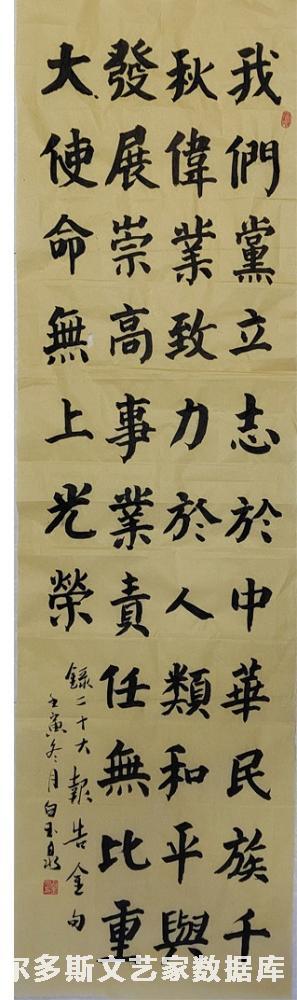 我們黨立志於中華民族千
秋偉業致力於人類和平與
發展崇高事業責任無比重
大使命無上光榮
錄二十大報告金句
壬寅冬月白玉泉
尔多斯文艺家数据库